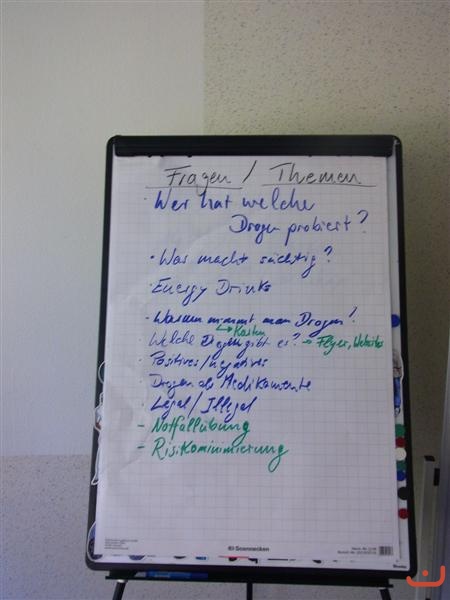 Fragen / Themen
· Wer hat welche
Drogen probiert?
· Was macht süchtig?
· Energy Drinks
· Warum nimmt man Drogen?
↳ Karten
Welche Drogen gibt es? → Flyer, Websites
· Positives/negatives
Drogen als Medikamente
· Legal / Illegal
- Notfallübung
- Risikominimierung
Soennecken